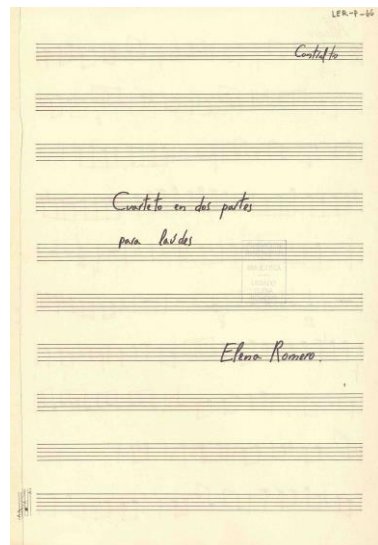 LER-P-66
Contralto
Cuarteto en dos partes
para laúdes
Elena Romero.